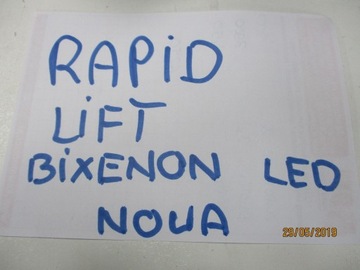 RAPiD
LiFT
BiXENON LED
NOUA
29/05/2019